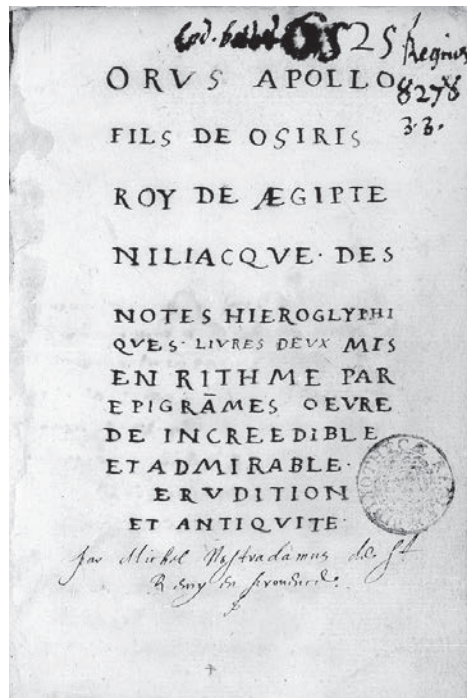 25
Regius
8278
3.3.
ORVS APOLLO
FILS DE OSIRIS
ROY DE ÆGIPTE
NILIACQVE· DES
NOTES HIEROGLYPHI
QVES· LIVRES DEVX MIS
EN RITHME PAR
EPIGRĀMES OEVRE
DE INCREEDIBLE
ET ADMIRABLE·
ERVDITION
ET ANTIQVITE·
par Michel Nostradamus de St
Remy en